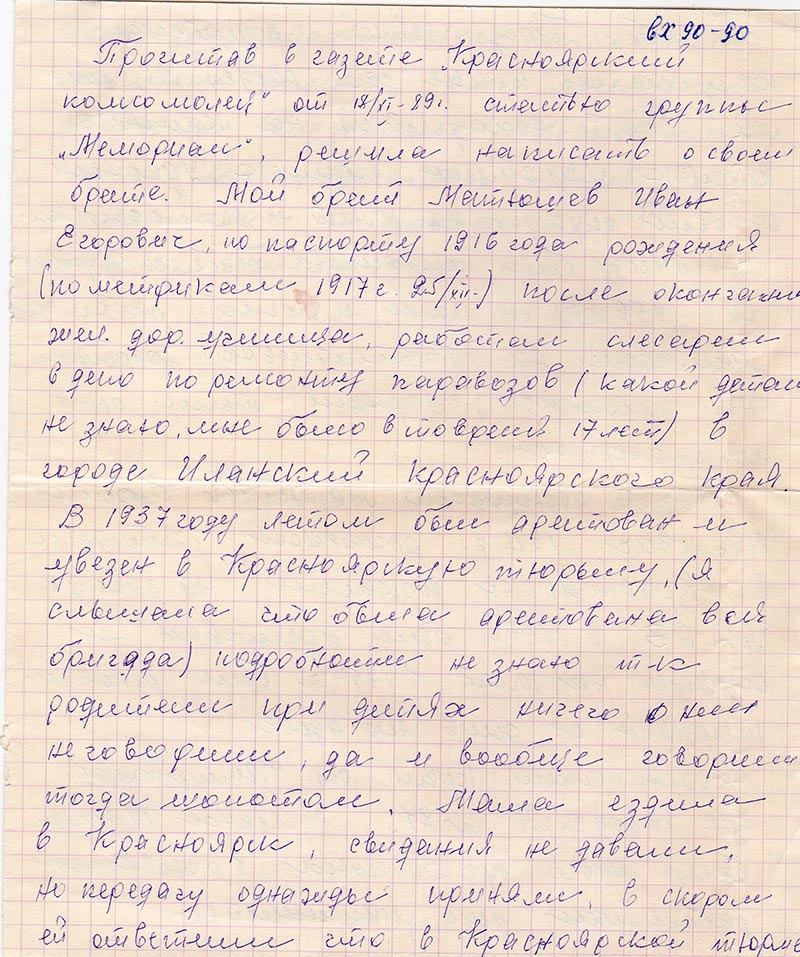 вх 90-90
Прочитав в газете „Красноярский
комсомолец“ от 18/XI-89г. статью группы
„Мемориал“, решила написать о своем
брате. Мой брат Матюшев Иван
Егорович, по паспорту 1916 года рождения
(по метрикам 1917 г. 25/XII.) после окончания
жел. дор. училища, работал слесарем
в депо по ремонту паравозов (какой детали
не знаю, мне было в то время 17 лет) в
городе Иланский Красноярского края.
В 1937 году летом был арестован и
увезен в Красноярскую тюрьму, (я
слышала что была арестована вся
бригада) подробности не знаю т-к
родители при детях ничего о нем
не говорили, да и вообще говорили
тогда шопотом. Мама ездила
в Красноярск, свидания не давали,
но передачу однажды приняли, в скором
ей ответили что в Красноярской тюрме